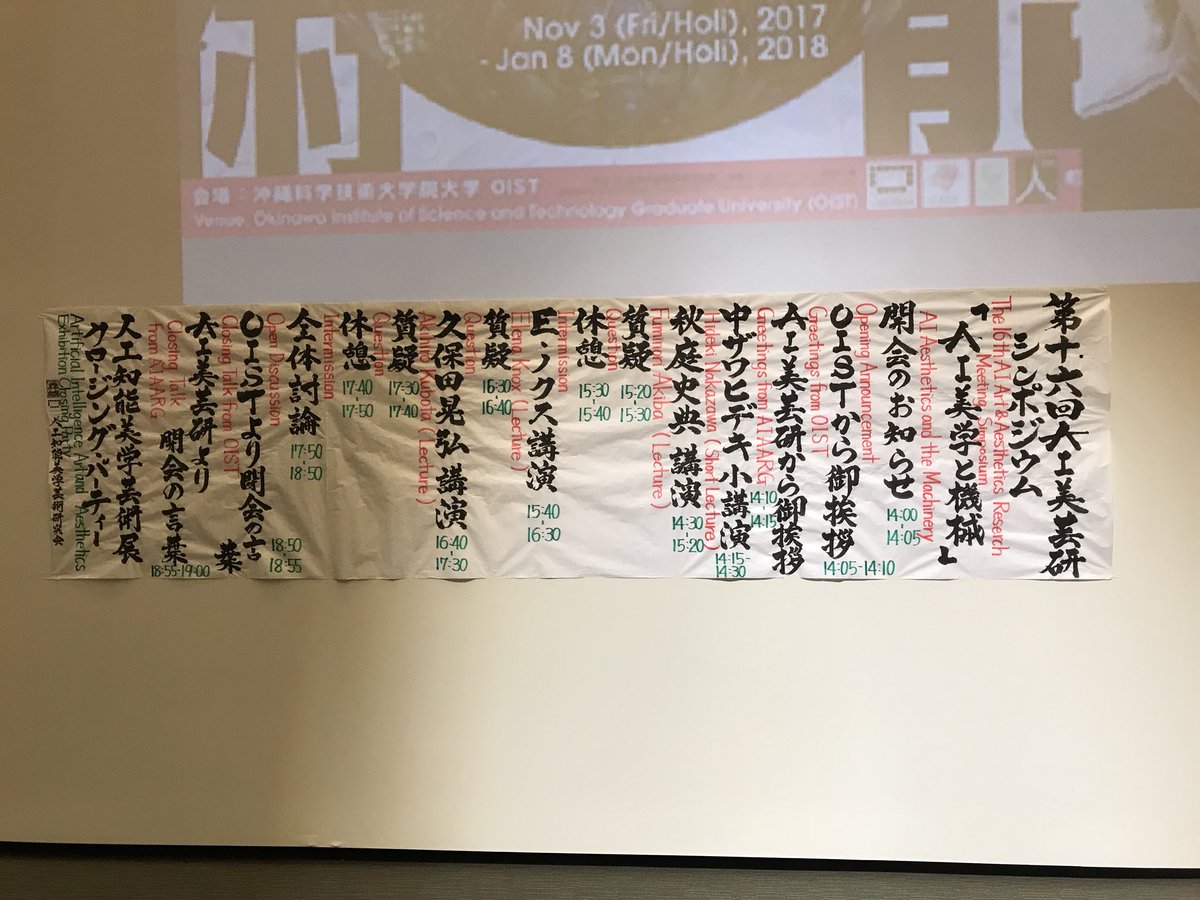 Nov 3 (Fri/Holi), 2017
- Jan 8 (Mon/Holi), 2018
会場：沖縄科学技術大学院大学 OIST
Venue: Okinawa Institute of Science and Technology Graduate University (OIST)
人
第十六回人工美芸研
シンポジウム
The 16th AI Art & Aesthetics Reserch
Meeting Symposium
「人工美学と機械」
AI Aesthetics and the Machinery
開会のお知らせ
14:00-14:05
Opening Announcement
OISTから御挨拶
14:05-14:10
Greetings from OIST
人工美芸研から御挨拶
14:10-14:15
Greetings from AIAARG
中ザワヒデキ小講演
14:15-14:30
Hideki Nakazawa (Short Lecture)
秋庭史典 講演
14:30-15:20
Fuminori Akiba (Lecture)
質疑
15:20-15:30
Question
休憩
15:30-15:40
Intermission
E.ノクス講演
15:40-16:30
Elena Knox (Lecture)
質疑
16:30-16:40
Question
久保田晃弘 講演
16:40-17:30
Akihiro Kubota (Lecture)
質疑
17:30-17:40
Question
休憩
17:40-17:50
Intermission
全体討論
17:50-18:50
Open Discussion
OISTより閉会の言葉
18:50-18:55
Closing Talk from OIST
人工美芸研より
閉会の言葉
18:55-19:00
Closing Talk
from AIAARG
人工知能美学芸術展
クロージング・パーティー
Artificial Intelligence Art and Aesthetics
Exhibition Closing Party
人工知能美学芸術研究会